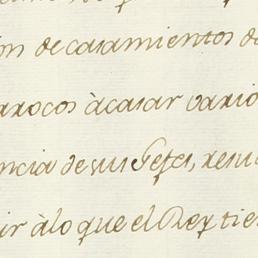 on de casamientos de
arrocos à casar vario
ncia de sus Gefes, resul
ir à lo que el Rey tie